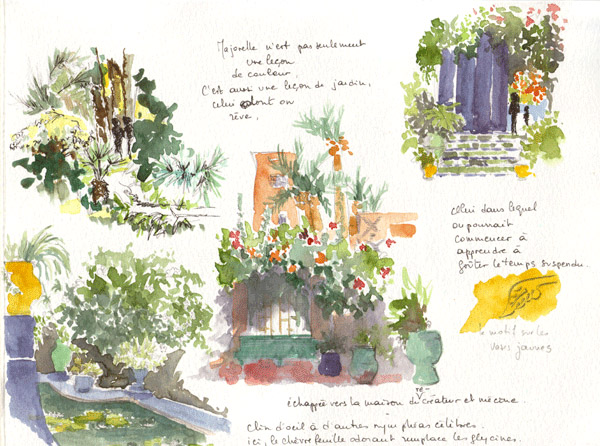 Majorelle n'est pas seulement
une leçon
de couleur.
C'est aussi une leçon de jardin,
celui dont on
rêve,
celui dans lequel
on pourrait
commencer à
apprendre à
goûter le temps suspendu.
le motif sur les
vases jaunes
ré-
échappée vers la maison du créateur et mécène.
Clin d'oeil à d'autres nymphéas célèbres.
ici, le chèvrefeuille odorant remplace les glycines.